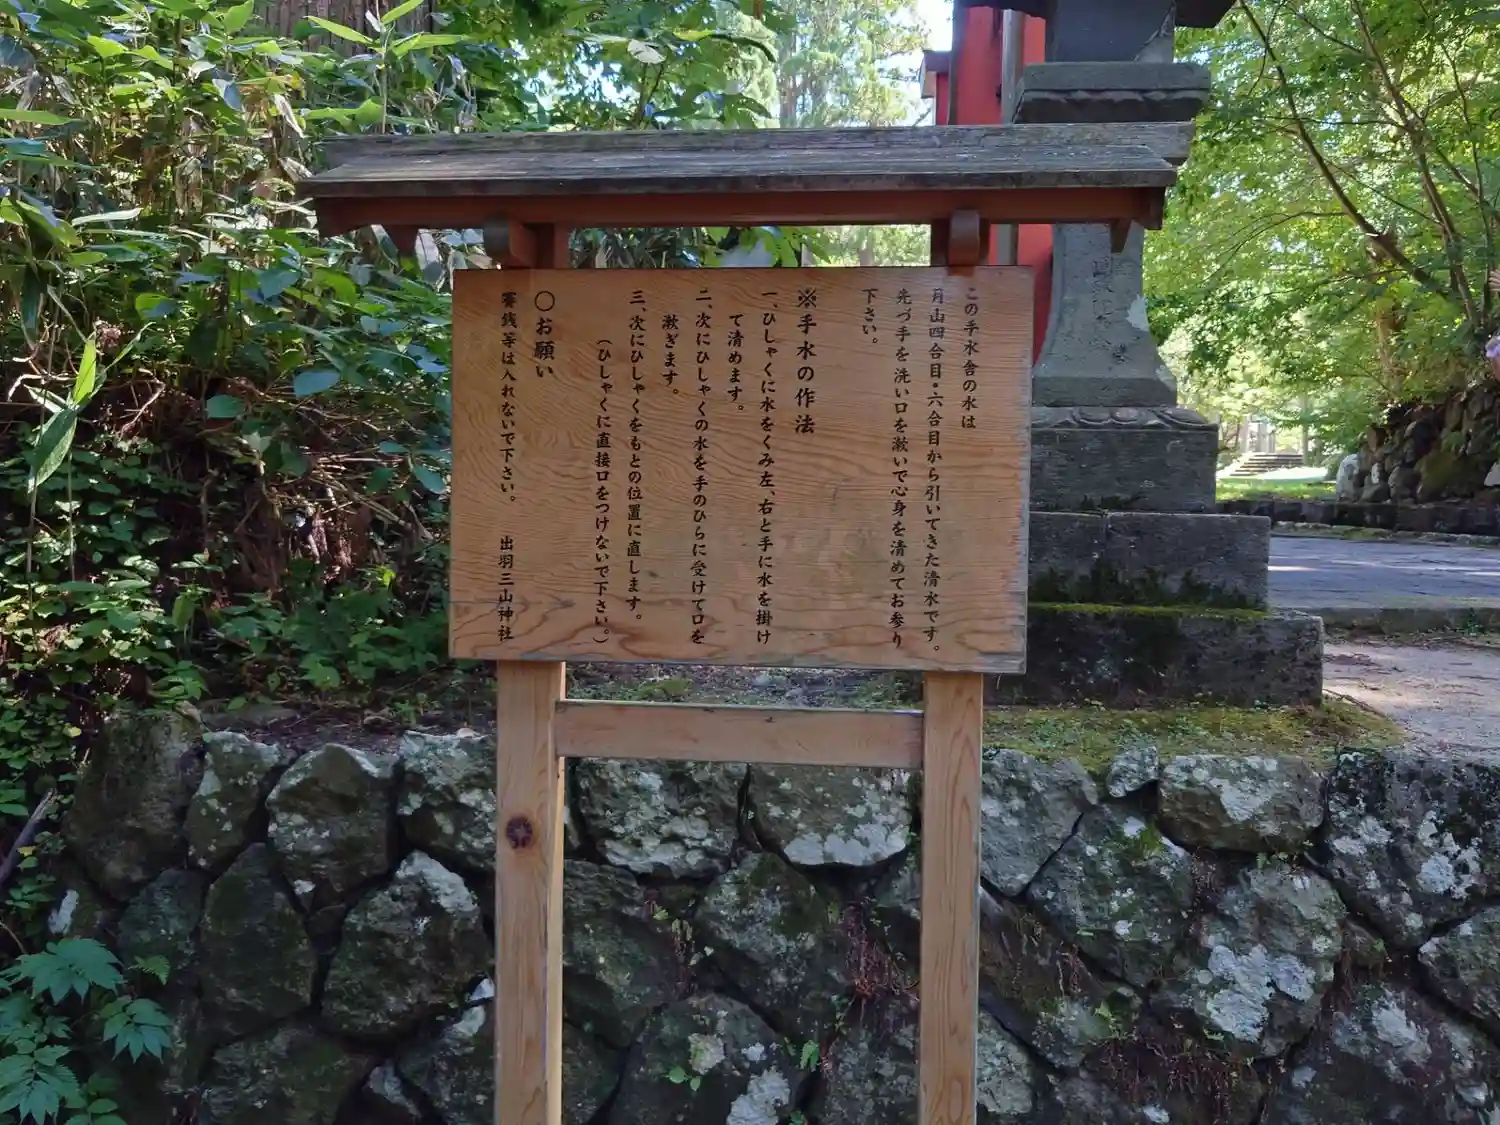 この手水舎の水は
月山四合目・六合目から引いてきた清水です。
先づ手を洗い口を漱いで心身を清めてお参り
下さい。
※手水の作法
一、ひしゃくに水をくみ左、右と手に水を掛け
て清めます。
二、次にひしゃくの水を手のひらに受けて口を
漱ぎます。
三、次にひしゃくをもとの位置に直します。
（ひしゃくに直接口をつけないで下さい。）
○お願い
賽銭等は入れないで下さい。 出羽三山神社